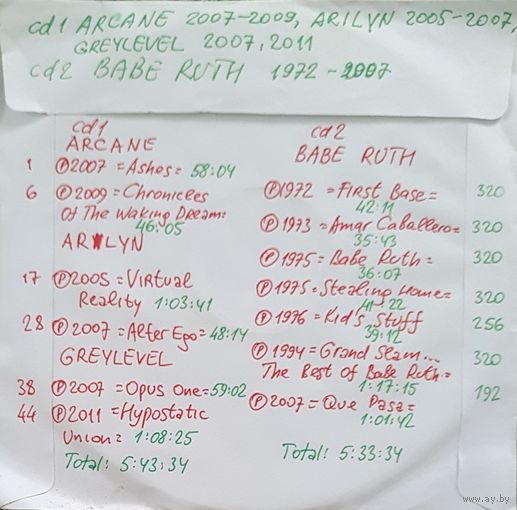 cd1 ARCANE 2007-2009, ARILYN 2005-2007,
GREYLEVEL 2007, 2011
cd2 BABE RUTH 1972-2007
cd1
ARCANE
1 ℗2007 = Ashes = 58:04
6 ℗2009 = Chronicles
Of The Waking Dream =
46:05
ARILYN
17 ℗2005 = Virtual
Reality 1:03:41
28 ℗2007 = Alter Ego = 48:14
GREYLEVEL
38 ℗2007 = Opus One = 59:02
44 ℗2011 = Hypostatic
Union = 1:08:25
Total: 5:43:34
cd2
BABE RUTH
℗1972 = First Base = 320
42:11
℗1973 = Amar Caballero = 320
35:43
℗1975 = Babe Ruth = 320
36:07
℗1975 = Stealing Home = 320
41:22
℗1976 = Kid's Stuff 256
39:12
℗1994 = Grand Slam... 320
The Best of Babe Ruth =
1:17:15 192
℗2007 = Que Pasa =
1:01:42
Total: 5:33:34
www.ay.by